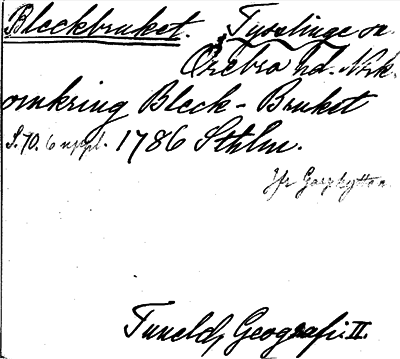 Bleckbruket. Tysslinge sn
Örebro hd. Nrk.
omkring Bleck-Bruket
S. 70. 6 uppl. 1786 Sthlm.
Jfr Garphyttan
Tuneld, Geografi. II.